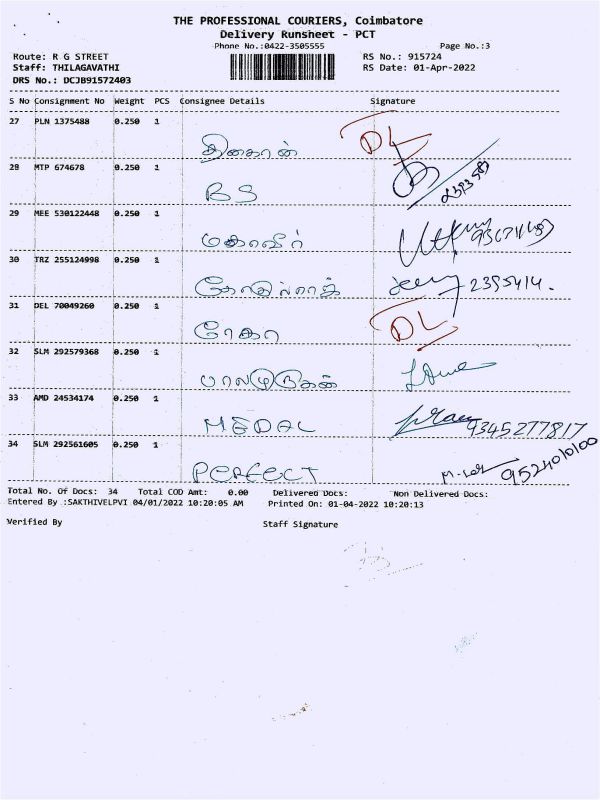 THE PROFESSIONAL COURIERS, Coimbatore
Delivery Runsheet - PCT
Phone No.:0422-3505555 Page No.:3
Route: R G STREET RS No.: 915724
Staff: THILAGAVATHI RS Date: 01-Apr-2022
DRS No.: DCJB91572403
S No Consignment No Weight PCS Consignee Details Signature
27 PLN 1375488 0.250 1
DL
28 MTP 674678 0.250 1
BS
29 MEE 530122448 0.250 1
மகாவீர்
30 TRZ 255124998 0.250 1
2395414.
31 DEL 70049260 0.250 1
ரேகா DL
32 SLM 292579368 0.250 1
பாலமுருகன்
33 AMD 24534174 0.250 1
MEDAL 9345277817
34 SLM 292561605 0.250 1
PERFECT 9524010100
Total No. Of Docs: 34 Total COD Amt: 0.00 Delivered Docs: Non Delivered Docs:
Entered By :SAKTHIVELPVI 04/01/2022 10:20:05 AM Printed On: 01-04-2022 10:20:13
Verified By Staff Signature